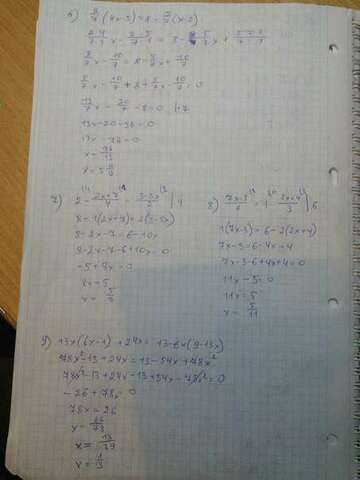 6) 2/7 (4x-5) = 8 - 5/7 (x-2)
8/7 x - 10/7 = 8 - 5/7 x + 10/7
8/7 x - 10/7 - 8 + 5/7 x - 10/7 = 0
13/7 x - 20/7 - 8 = 0 | ·7
13x - 20 - 56 = 0
13x - 76 = 0
x = 76/13
7) 2 - (2x+7)/4 = (3-5x)/2 | 4
8 - 1(2x+7) = 2(3-5x)
8-2x-7=6-10x
8-2x-7-6+10x=0
-5+8x=0
8x=5
x = 5/8
8) (7x-3)/6 = 1 - (2x+4)/3 | 6
1(7x-3)=6-2(2x+4)
7x-3=6-4x-4
7x-3-6+4x+4=0
11x-5=0
11x=5
x = 5/11
9) 13x(6x-1) + 24x = 13-6x(9-13x)
78x²-13+24x=13-54x+78x²
78x²-13+24x-13+54x-78x²=0
-26+78x=0
78x=26
x = 26/78
x = 13/39
x = 1/3